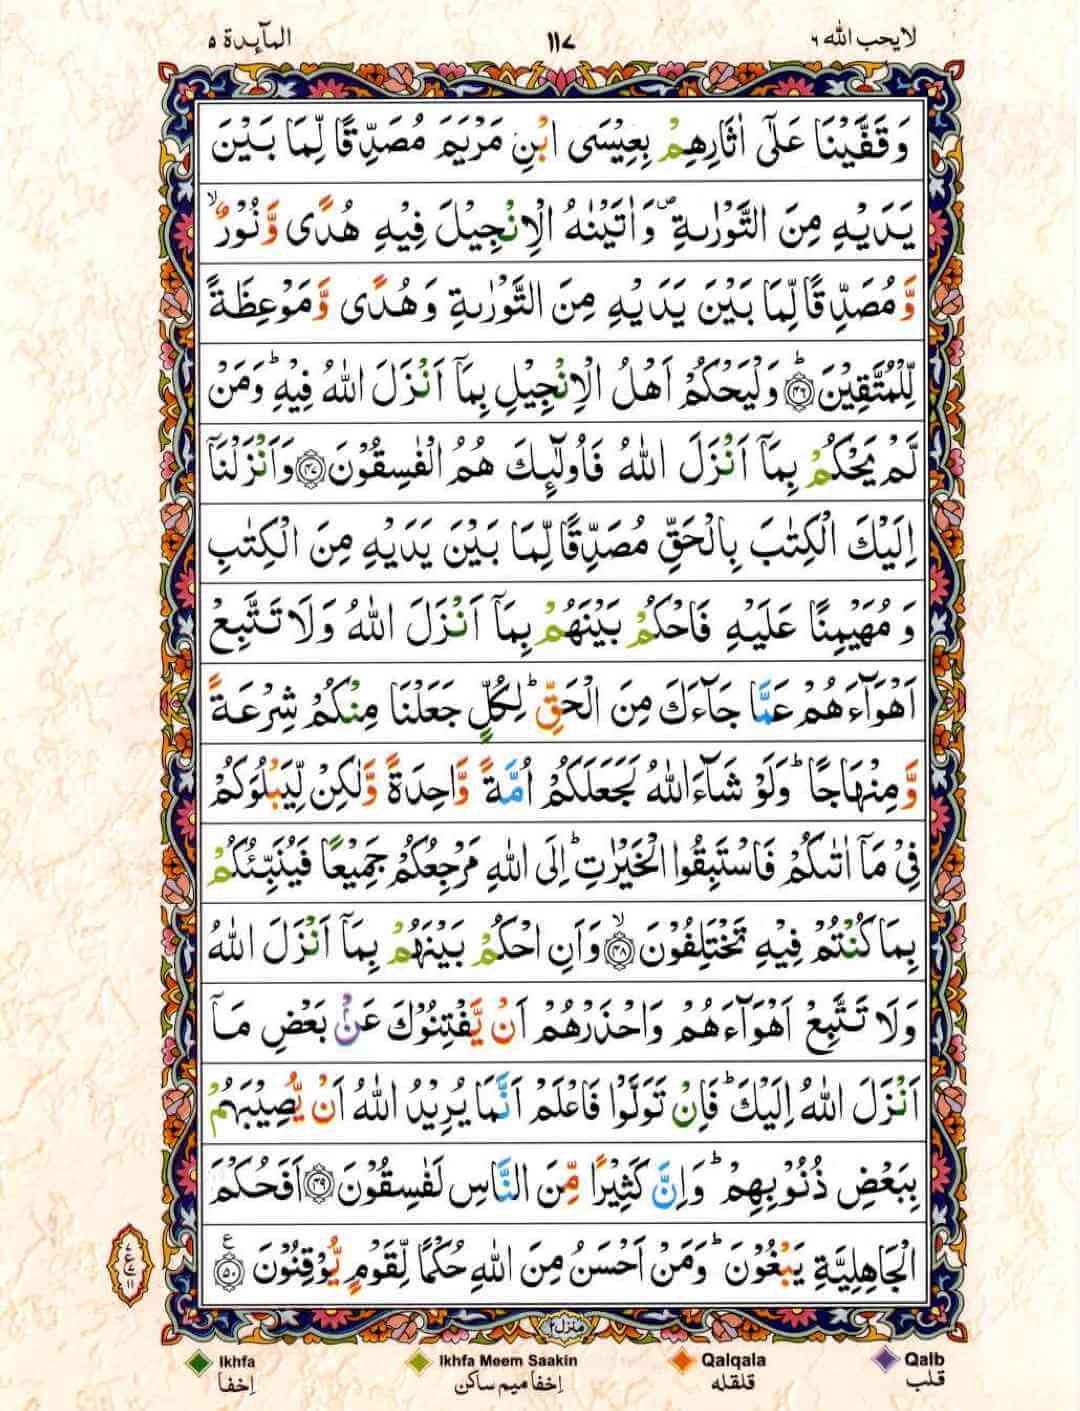 لا يحب الله ٦
١١٧
المآئدة ٥
وَقَفَّيْنَا عَلٰٓى اٰثَارِهِمْ بِعِيْسَى ابْنِ مَرْيَمَ مُصَدِّقًا لِّمَا بَيْنَ
يَدَيْهِ مِنَ التَّوْرٰىةِ ۪ وَاٰتَيْنٰهُ الْاِنْجِيْلَ فِيْهِ هُدًى وَّنُوْرٌ ۙ
وَّمُصَدِّقًا لِّمَا بَيْنَ يَدَيْهِ مِنَ التَّوْرٰىةِ وَهُدًى وَّمَوْعِظَةً
لِّلْمُتَّقِيْنَ ؕ‏﴿۴۶﴾ وَلْيَحْكُمْ اَهْلُ الْاِنْجِيْلِ بِمَاۤ اَنْزَلَ اللّٰهُ فِيْهِ ؕ وَمَنْ
لَّمْ يَحْكُمْ بِمَاۤ اَنْزَلَ اللّٰهُ فَاُولٰٓئِكَ هُمُ الْفٰسِقُوْنَ ﴿۴۷﴾ وَاَنْزَلْنَاۤ
اِلَيْكَ الْكِتٰبَ بِالْحَقِّ مُصَدِّقًا لِّمَا بَيْنَ يَدَيْهِ مِنَ الْكِتٰبِ
وَمُهَيْمِنًا عَلَيْهِ فَاحْكُمْ بَيْنَهُمْ بِمَاۤ اَنْزَلَ اللّٰهُ وَلَا تَتَّبِعْ
اَهْوَآءَهُمْ عَمَّا جَآءَكَ مِنَ الْحَقِّ ؕ لِكُلٍّ جَعَلْنَا مِنْكُمْ شِرْعَةً
وَّمِنْهَاجًا ؕ وَلَوْ شَآءَ اللّٰهُ لَجَعَلَكُمْ اُمَّةً وَّاحِدَةً وَّلٰكِنْ لِّيَبْلُوَكُمْ
فِيْ مَاۤ اٰتٰىكُمْ فَاسْتَبِقُوا الْخَيْرٰتِ ؕ اِلَى اللّٰهِ مَرْجِعُكُمْ جَمِيْعًا فَيُنَبِّئُكُمْ
بِمَا كُنْتُمْ فِيْهِ تَخْتَلِفُوْنَ ۙ‏﴿۴۸﴾ وَاَنِ احْكُمْ بَيْنَهُمْ بِمَاۤ اَنْزَلَ اللّٰهُ
وَلَا تَتَّبِعْ اَهْوَآءَهُمْ وَاحْذَرْهُمْ اَنْ يَّفْتِنُوْكَ عَنْ بَعْضِ مَاۤ
اَنْزَلَ اللّٰهُ اِلَيْكَ ؕ فَاِنْ تَوَلَّوْا فَاعْلَمْ اَنَّمَا يُرِيْدُ اللّٰهُ اَنْ يُّصِيْبَهُمْ
بِبَعْضِ ذُنُوْبِهِمْ ؕ وَاِنَّ كَثِيْرًا مِّنَ النَّاسِ لَفٰسِقُوْنَ ﴿۴۹﴾ اَفَحُكْمَ
الْجَاهِلِيَّةِ يَبْغُوْنَ ؕ وَمَنْ اَحْسَنُ مِنَ اللّٰهِ حُكْمًا لِّقَوْمٍ يُّوْقِنُوْنَ ﴿۵۰﴾ ع
ع ١١
منزل ٢
Ikhfa
Ikhfa Meem Saakin
Qalqala
Qalb
إخفا
إخفا ميم ساكن
قلقله
قلب